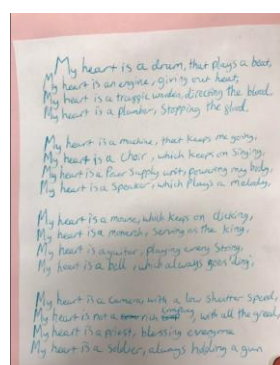 My heart is a drum, that plays a beat,
My heart is an engine, giving out heat,
My heart is a traggic warden, directing the blood
My heart is a plumber, stopping the flod.
My heart is a machine, that keeps me going,
My heart is a Choir, which keeps on Singing,
My heart is a Power Supply unit, powering my body,
My heart is a Speaker, which Plays a melody,
My heart is a mouse, which keeps on clicking,
My heart is a monarsh, Serving as the king,
My heart is a guitar, playing every String,
My heart is a bell, which always goes ding,
My heart is a Camera, with a low shutter Speed,
My heart is not a rich, with all the greed,
My heart is a priest, blessing everyone
My heart is a soldier, always holding a gun